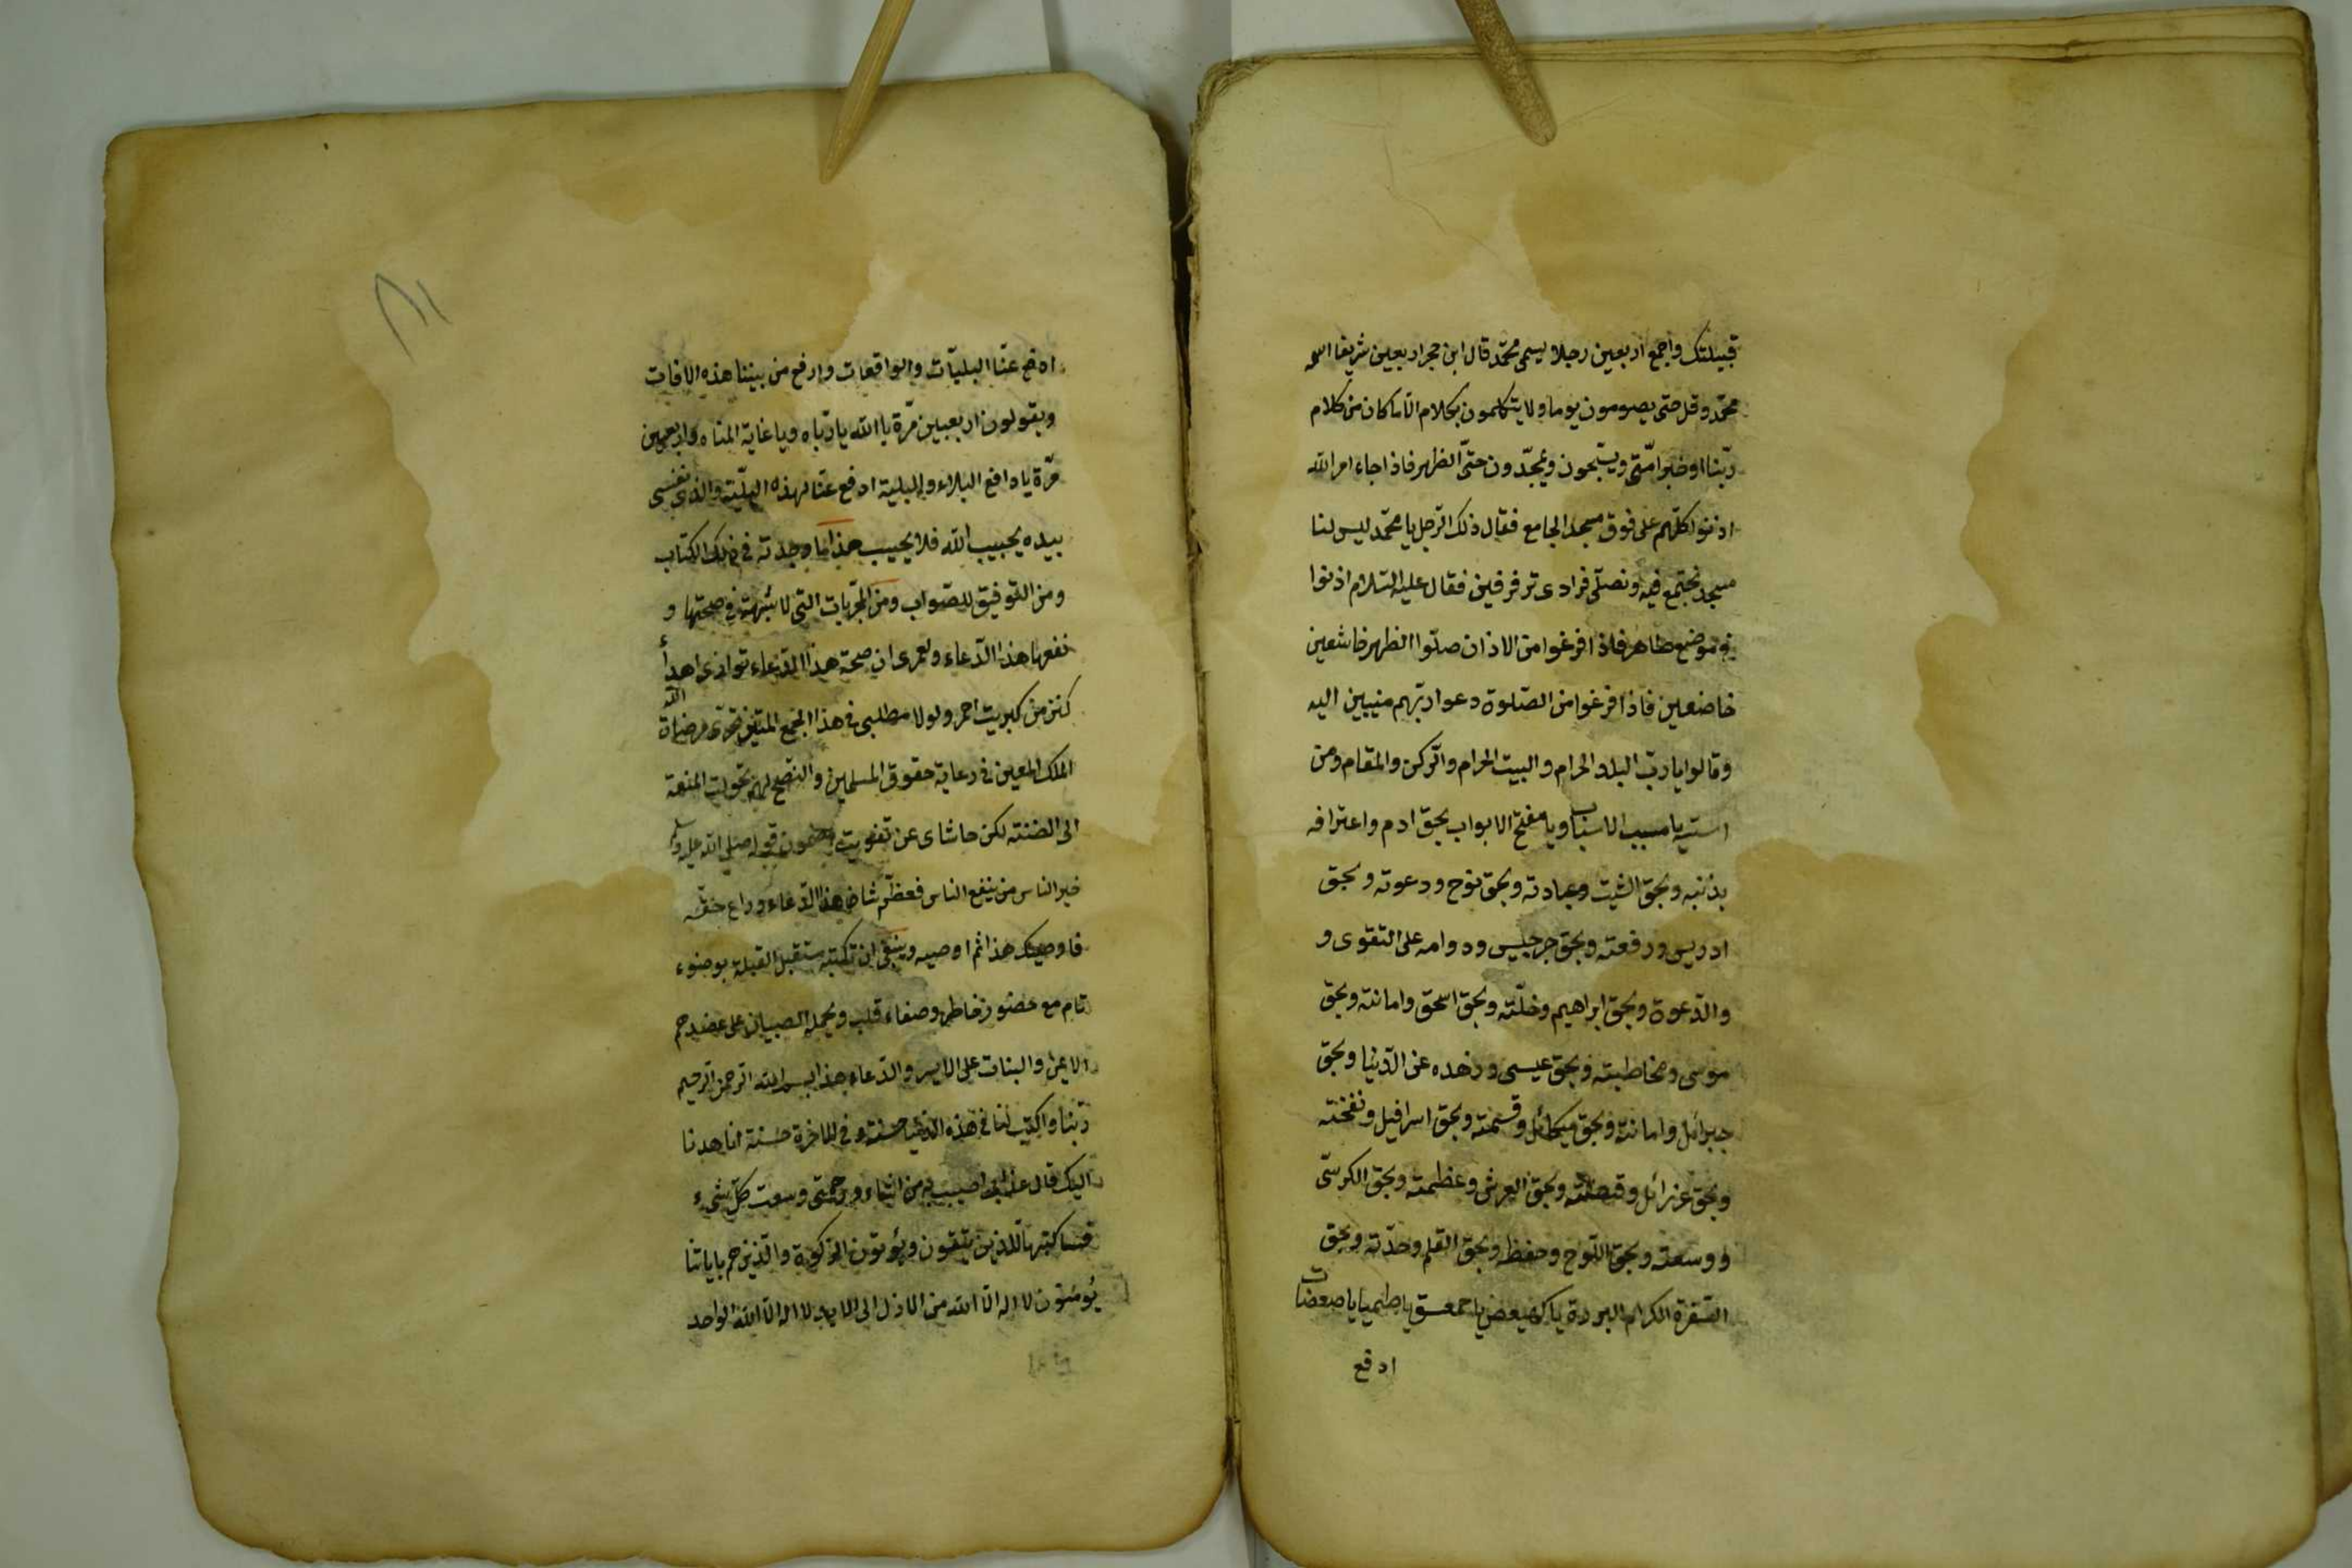 قبيلتك واجمع اربعين رجلا يسمى محمّد قال ابن حجر اربعين شريفا اسمه
محمّد وقل حتى يصومون يوما ولا يتكلمون بكلام الّا ما كان من كلام
ربّنا او خبر امّتى ويسبّحون ويمجّدون حتّى الظهر فاذا جاء امر الله
اذنوا كلّهم على فوق مسجد الجامع فقال ذلك الرّجل يا محمّد ليس لنا
مسجد نجتمع فيه ونصلّى فرادى فقال عليه السّلام اذنوا
فى موضع طاهر فاذا فرغوا من الاذان صلّوا الظهر خاشعين
خاضعين فاذا فرغوا من الصّلوة دعوا ربّهم منيبين اليه
وقالوا يا ربّ البلد الحرام والبيت الحرام والرّكن والمقام ومن
يا مسبب الاسباب ويا مفتح الابواب بحق ادم واعترافه
بذنبه وبحق الشيث وعبادته وبحق نوح ودعوته وبحق
ادريس ورفعته وبحق جرجيس ودوامه على التقوى و
والدّعوة وبحق ابراهيم وخلّته وبحق اسحق وامانته وبحق
موسى ومخاطبته وبحق عيسى وزهده عن الدّنيا وبحق
جبرائل وامانته وبحق ميكائل وقسمته وبحق اسرافيل ونفخته
وبحق عزرائل وقبضته وبحق العرش وعظمته وبحق الكرسّى
ووسعته وبحق اللّوح وحفظه وبحق القلم وحدّته وبحق
السّفرة الكرام البررة يا كهيعص يا حمعسق
ادفع
ادفع عنّا البليّات والواقعات وارفع من بيننا هذه الافات
ويقولون اربعين مرّة يا الله يا ربّاه ويا غاية المناه واربعين
مرّة يا دافع البلاء والبلية ادفع عنّا لهذه البليّة والذى نفسى
بيده يجيب الله فلا يخيب هذا ما وجدته فى ذلك الكتاب
ومن التوفيق للصّواب ومن المجرّبات التى لا شبهة فى صحتها و
نفعها هذا الدّعاء ولعمرى ان صحة هذا الدّعاء
كنز من كبريت احمر ولولا مطلبى فى هذا الجمع المتين تحرّى مرضات الله
الملك المعين فى رعاية حقوق المسلمين والنصح لهم تحولت المنعة
الى الضنته لكن حاشاى عن تفويت مضمون قوله صلى الله عليه وسلم
خير الناس من ينفع الناس فعظّم شان هذا الدّعاء وراع حقّه
فاوصيك هذا ثم اوصيه وينبغى ان تكتبه مستقبل القبلة بوضوء
تام مع حضور خاطر وصفاء قلب ويحمله الصبيان على عضدهم
الايمن والبنات على الايسر والدّعاء هذا بسم الله الرحمن الرحيم
ربّنا واكتب لنا فى هذه الدنيا حسنة وفى الاخرة حسنة انا هدنا
اليك قال عذابى اصيب به من اشاء ورحمتى وسعت كلّ شىء
فساكتبها للذين يتقون ويؤتون الزكوة والّذين هم باياتنا
يؤمنون لا اله الّا الله من الازل الى الابد لا اله الّا الله الواحد